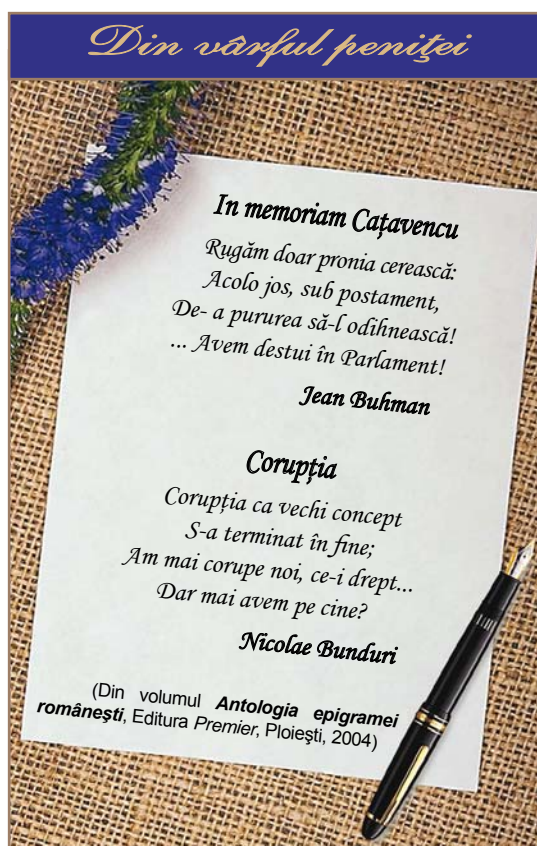 Din vârful peniţei
In memoriam Caţavencu
Rugăm doar pronia cerească:
Acolo jos, sub postament,
De- a pururea să-l odihnească!
... Avem destui în Parlament!
Jean Buhman
Corupţia
Corupţia ca vechi concept
S-a terminat în fine;
Am mai corupe noi, ce-i drept...
Dar mai avem pe cine?
Nicolae Bunduri
(Din volumul Antologia epigramei
româneşti, Editura Premier, Ploieşti, 2004)